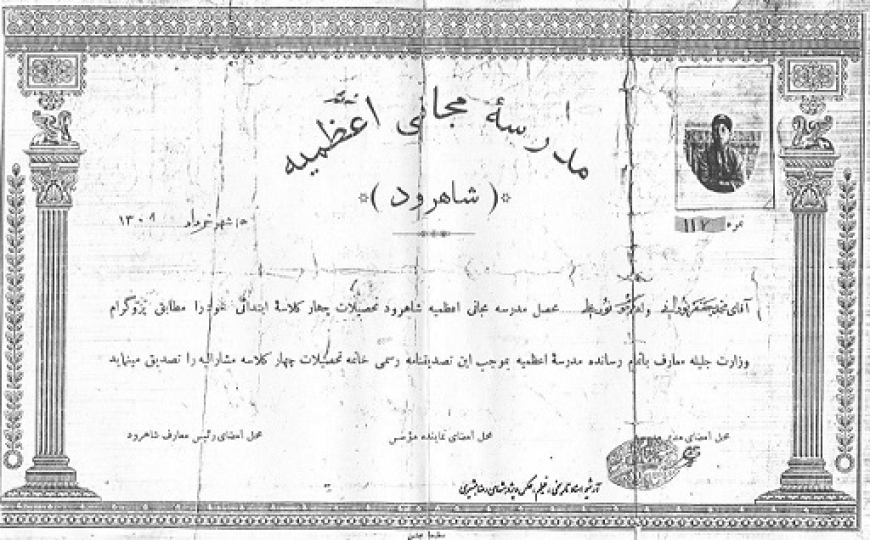 مدرسهٔ مجانی اعظمیه
(شاهرود)
نمره ۱۱۷
شهر خرداد ۱۳۰۹
آقای محمد جعفر ولد محصل مدرسه مجانی اعظمیه شاهرود تحصیلات چهار کلاسهٔ ابتدائی خود را مطابق پروگرام
وزارت جلیله معارف باتمام رسانده مدرسهٔ اعظمیه بموجب این تصدیقنامه رسمی خاتمه تحصیلات چهار کلاسه مشارالیه را تصدیق مینماید
محل امضای مدیر مدرسه
محل امضای نماینده مؤسس
محل امضای رئیس معارف شاهرود
آرشیو اسناد تاریخی، فیلم، عکس و پژوهشهای رضا بشیری